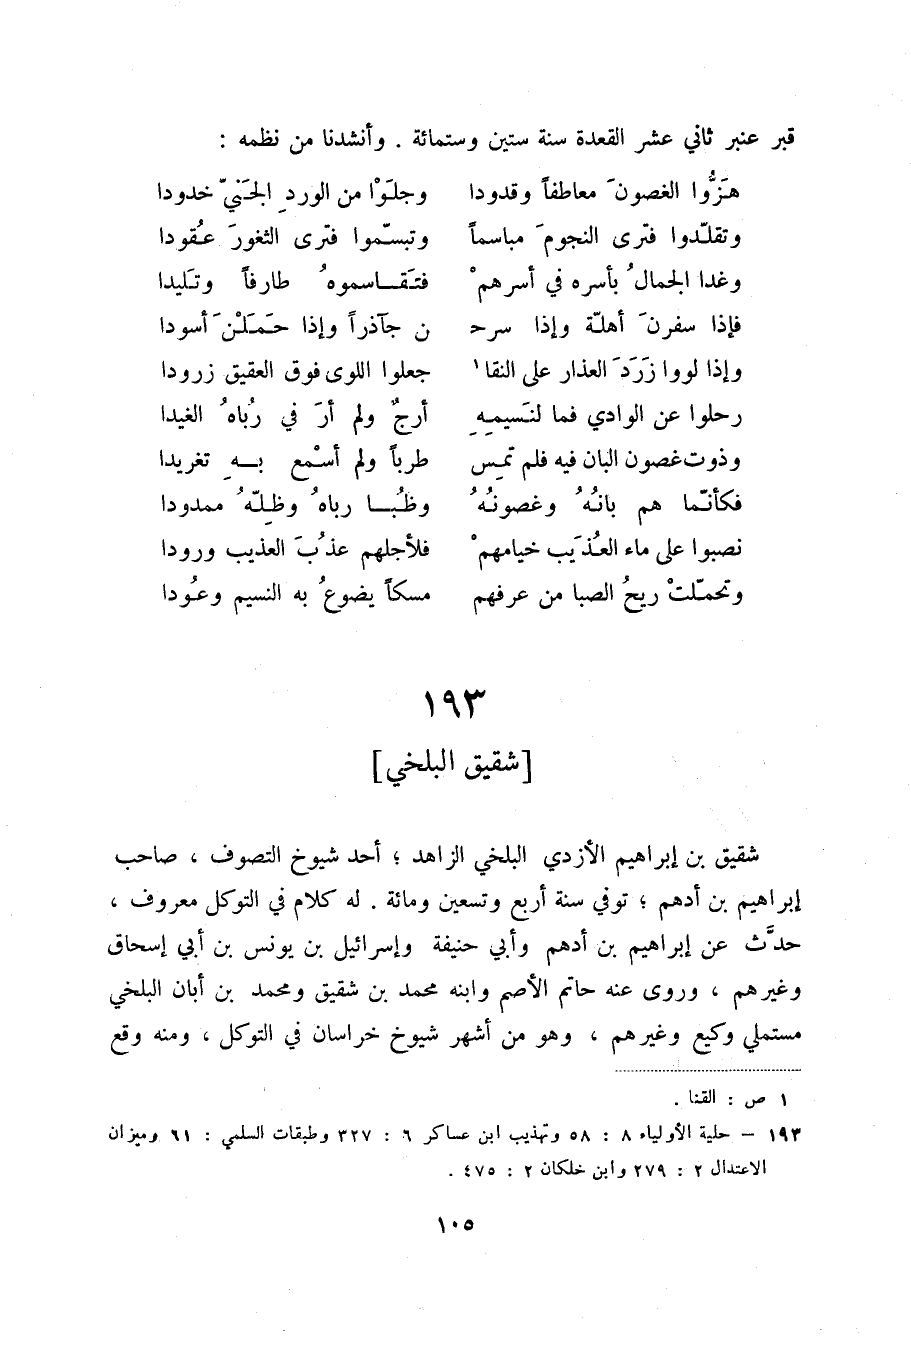 قبر عنبر ثاني عشر القعدة سنة ستين وستمائة . وأنشدنا من نظمه :
هَزُّوا الغصونَ معاطفاً وقدودا وجلَوْا من الوردِ الجَنيّ خدودا
وتقلّدوا فترى النجومَ مباسماً وتبسّموا فترى الثغورَ عقُودا
وغدا الجمالُ بأسره في أسرهمْ فتقَاسموهُ طارفاً وتَليدا
فإذا سفرنَ أهلّة وإذا سرحـ ـن جآذراً وإذا حمَلْنَ أسودا
وإذا لووا زَرَدَ العذار على النقا١ جعلوا اللوى فوق العقيق زرودا
رحلوا عن الوادي فما لنَسيمِهِ أرجٌ ولم أرَ في رُباهُ الغيدا
وذوت غصون البان فيه فلم تمِس طرباً ولم أسْمع بـهِ تغريدا
فكأنّما هم بانُهُ وغصونُهُ وظُبـا رباهُ وظِلّهُ ممدودا
نصبوا على ماء العُذَيب خيامهمْ فلأجلهم عذُبَ العذيب ورودا
وتحمّلتْ ريحُ الصبا من عرفهم مسكاً يضوعُ به النسيم وعُودا
١٩٣
[شقيق البلخي]
شقيق بن إبراهيم الأزدي البلخي الزاهد ؛ أحد شيوخ التصوف ، صاحب
إبراهيم بن أدهم ؛ توفي سنة أربع وتسعين ومائة . له كلام في التوكل معروف ،
حدَّث عن إبراهيم بن أدهم وأبي حنيفة وإسرائيل بن يونس بن أبي إسحاق
وغيرهم ، وروى عنه حاتم الأصم وابنه محمد بن شقيق ومحمد بن أبان البلخي
مستملي وكيع وغيرهم ، وهو من أشهر شيوخ خراسان في التوكل ، ومنه وقع
١ ص : القنا .
١٩٣ – حلية الأولياء ٨ : ٥٨ وتهذيب ابن عساكر ٦ : ٣٢٧ وطبقات السلمي : ٦١ وميزان
الاعتدال ٢ : ٢٧٩ وابن خلكان ٢ : ٤٧٥ .
١٠٥